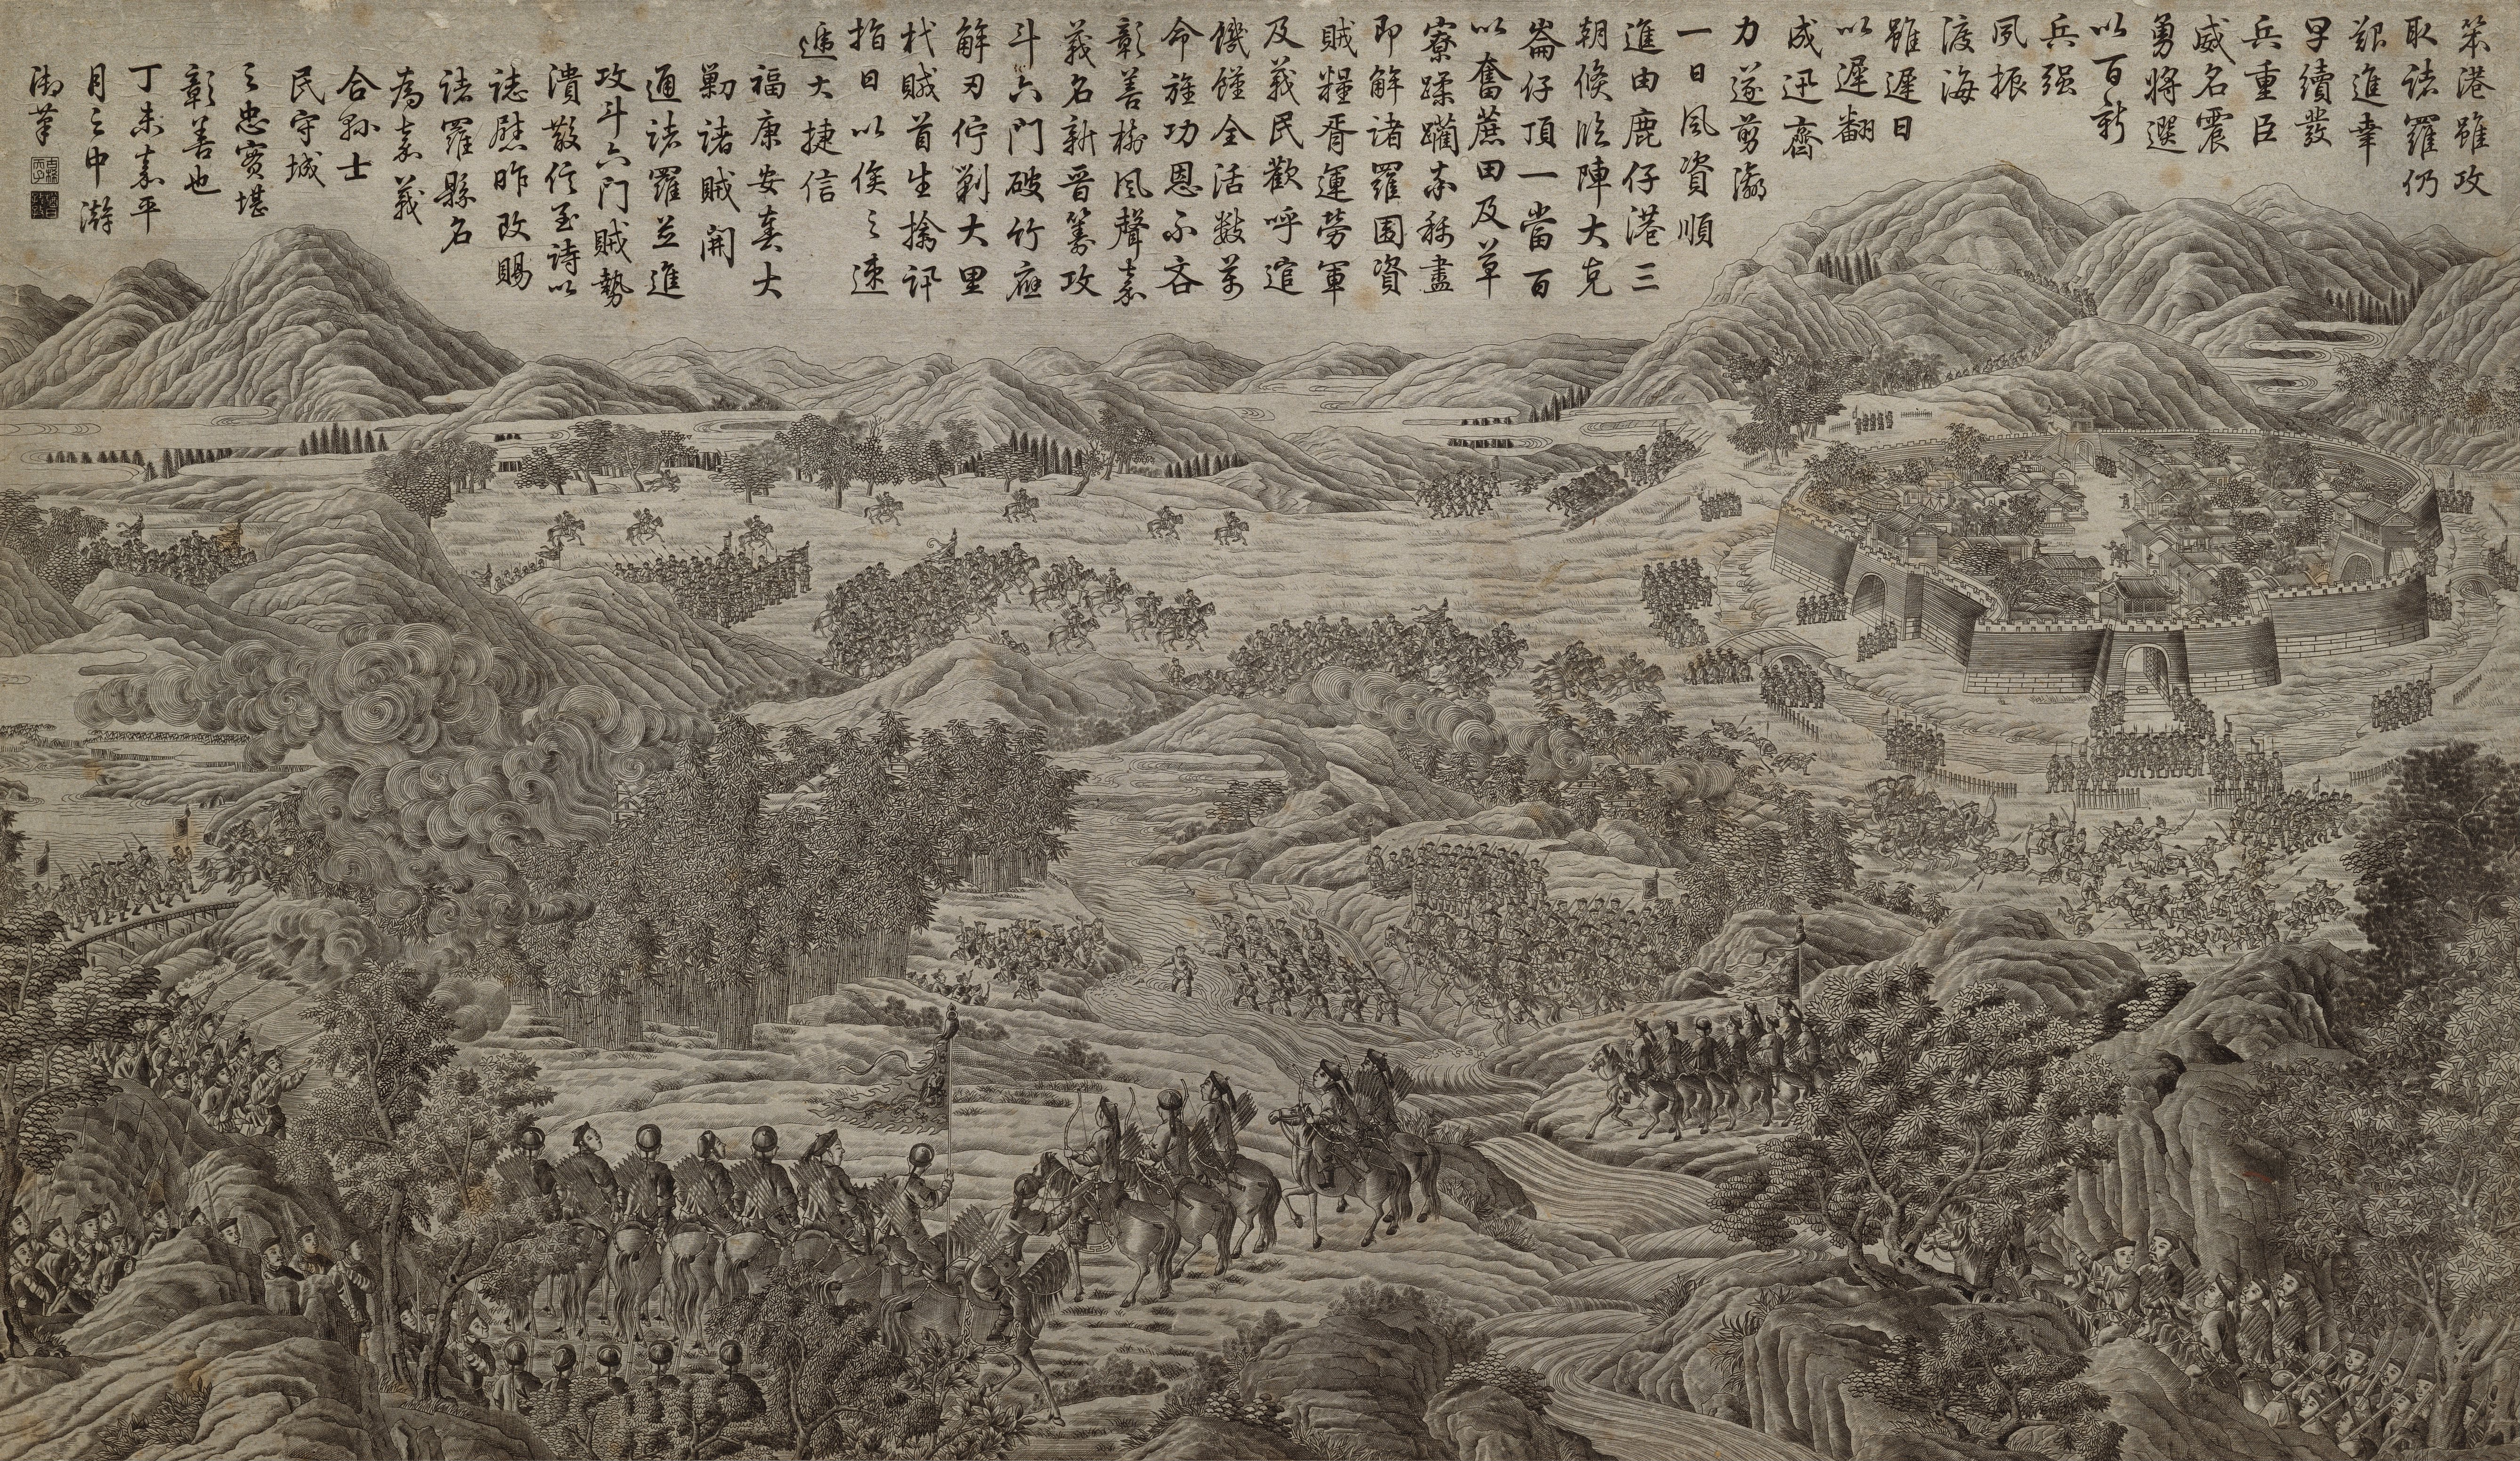 笨港雖攻
取諸羅仍
艱進幸
早續發
兵重臣
威名震
勇將選
以百新
兵强
夙振
渡海
雖遲日
以遲翻
成迅齊
力遂剪瀛
一日風資順
進由鹿仔港三
朝候臨陣大克
崙仔頂一當百
以奮蔗田及草
寮蹂躪亦稱盡
即解諸羅圍資
賊糧胥運勞軍
及義民歡呼逭
饑饉全活數萬
命旌功恩不吝
彰善樹風聲嘉
義名新晋籌攻
斗六門破竹應
解刃佇剿大里
杙賊首生擒訊
指日以俟之速
遞大捷信
福康安奏大
剿諸賊開
通諸羅並進
攻斗六門賊勢
潰散信至詩以
誌慰昨改賜
諸羅縣名
為嘉義
合縣士
民守城
之忠實堪
彰善也
丁未嘉平
月之中澣
御筆